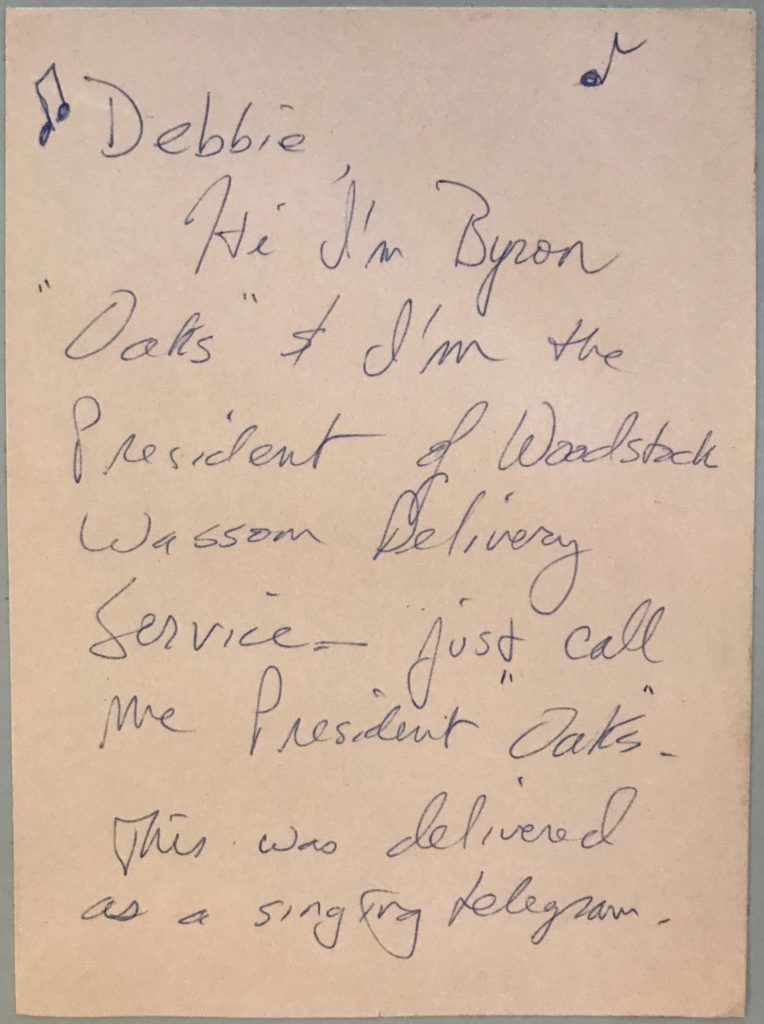 Debbie,
Hi I'm Byron
"Oaks" & I'm the
President of Woodstock
Wassom Delivery
Service - just call
me President "Oaks".
This was delivered
as a singing telegram.